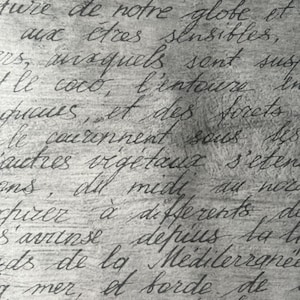 ture de notre globe et
aux êtres sensibles,
rs, auxquels sont sus
t le coco, l'entoure
et des forets
le couronnent sous
autres vegetaux s'eten
ns, du midi au nor
à differents d
s'avanse depius la
ds de la Mediterrané
mer, et borde de